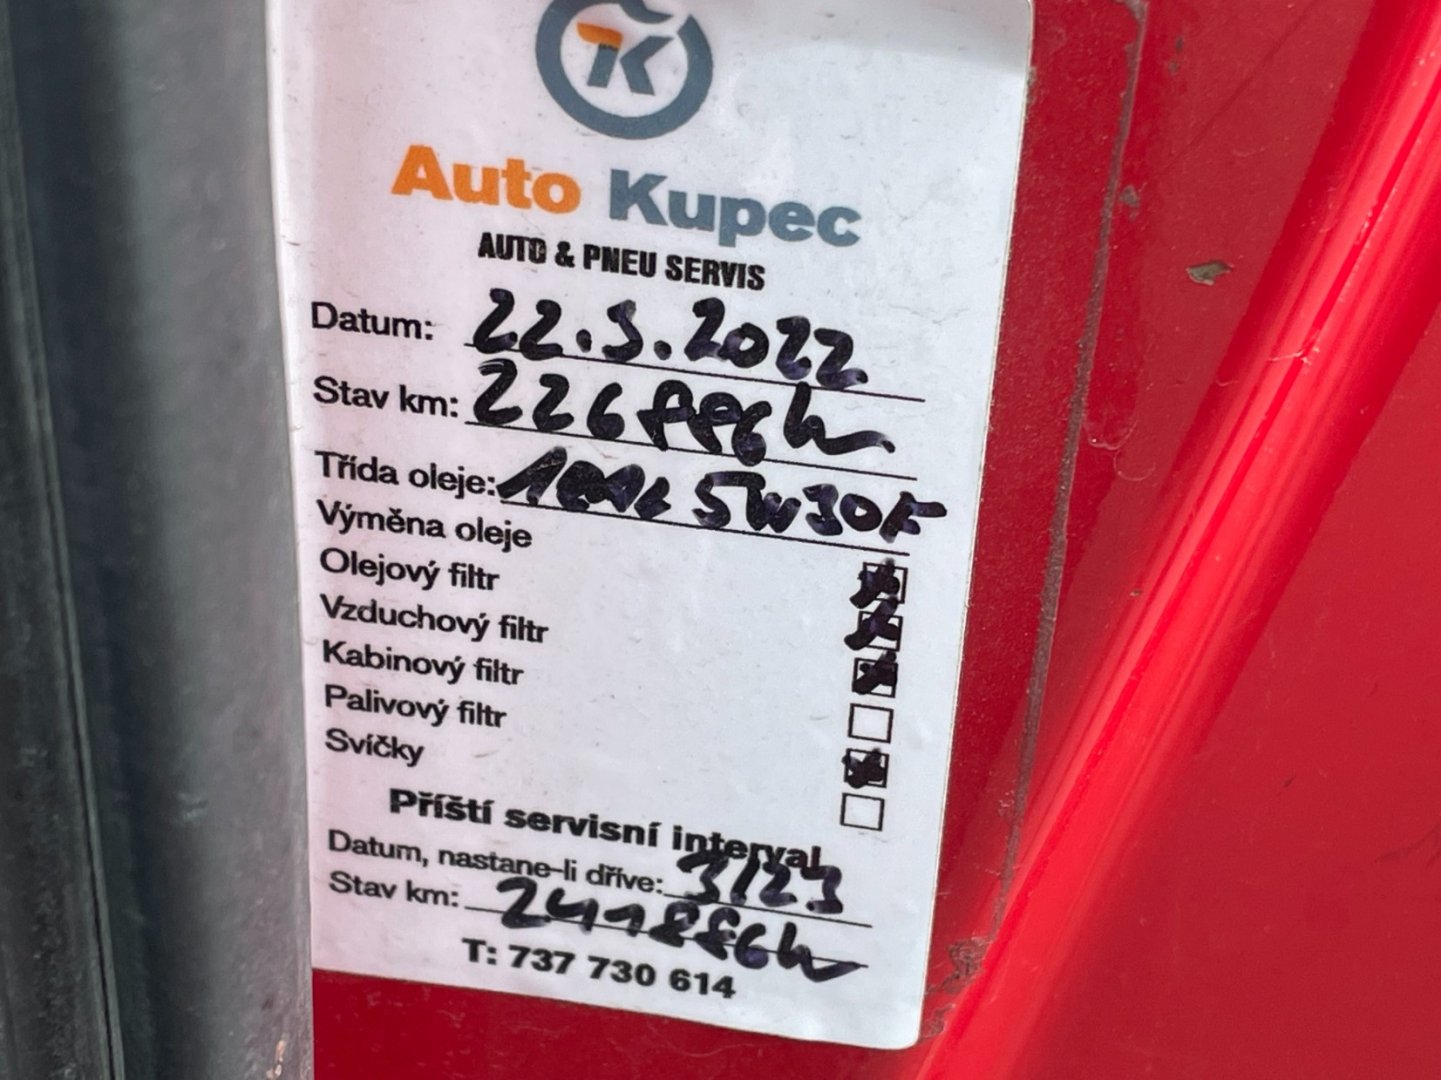 Auto Kupec
AUTO & PNEU SERVIS
Datum: 22.3.2022
Stav km: 226
Třída oleje: 5W30F
Výměna oleje
Olejový filtr
Vzduchový filtr
Kabinový filtr
Palivový filtr
Svíčky
Příští servisní interval
Datum, nastane-li dříve: 3/23
Stav km:
T: 737 730 614